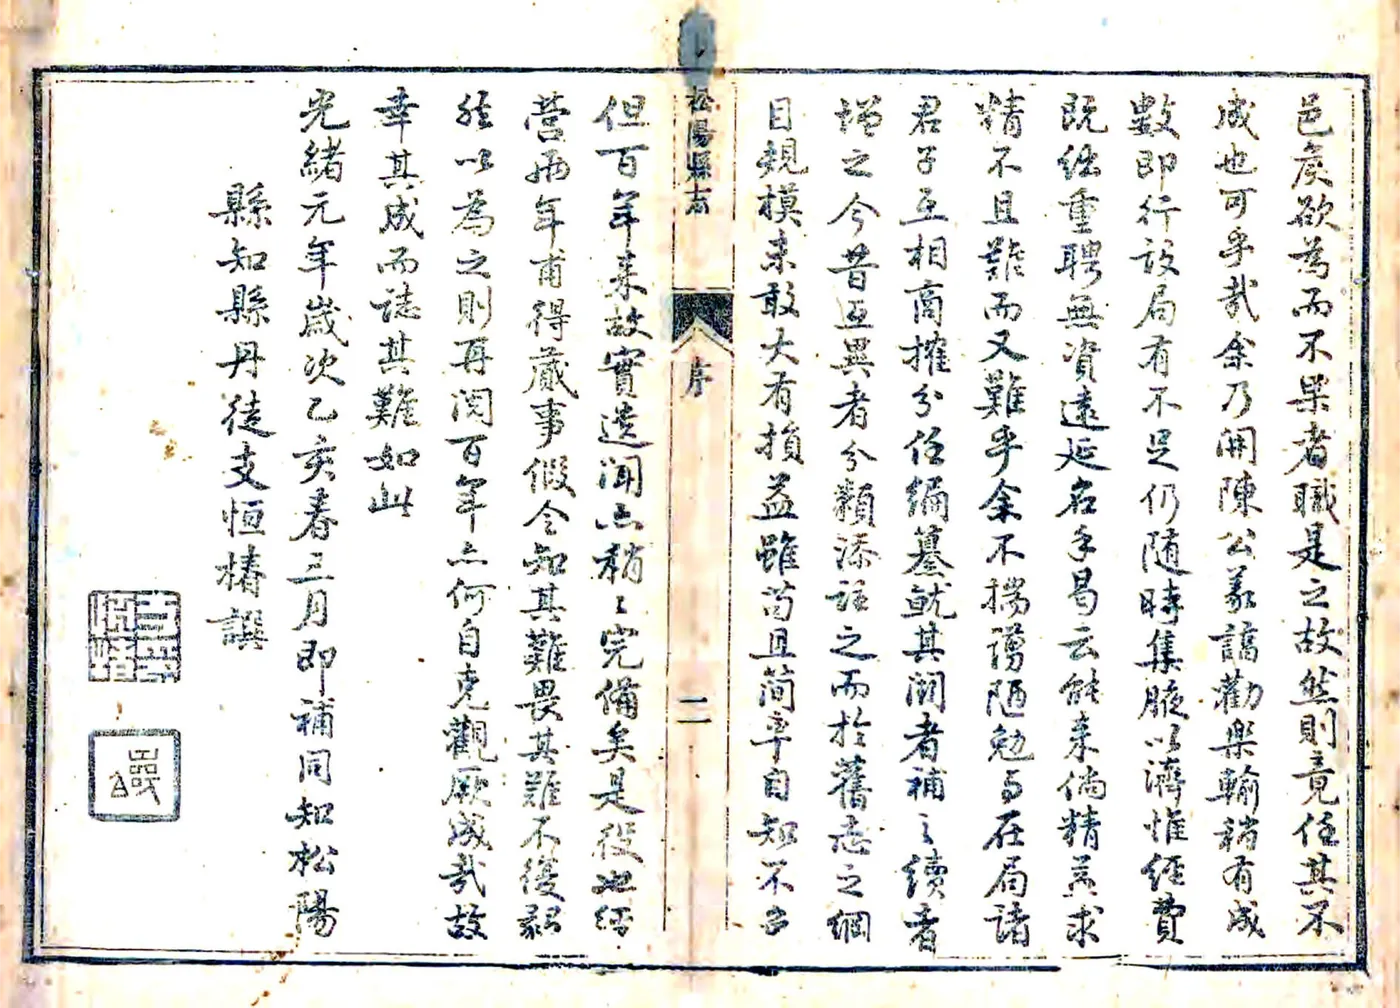 邑矦欲為而不果者職是之故然則竟任其不
成也可乎哉余乃開陳公義譸勸樂輸稍有成
數即行設局有不足仍随時集腋以濟惟經費
既絀重聘無資遠延名手曷云能来倘精益求
精不且難而又難乎余不揣谫陋勉与在局諸
君子互相商搉分任编纂觖其闕者補之續者
增之今昔互異者分類添註之而於舊志之綱
目規模未敢大有損益雖苟且简率自知不免
松陽縣志
序
二
但百年来故實遗闻亦稍稍完備矣是役也經
營兩年甫得蕆事假令知其難畏其難不復
能以為之則再閲百年亦何自克觀厥成哉故
幸其成而誌其難如此
光緒元年嵗次乙亥春三月即補同知松陽
縣知縣丹徒支恒椿譔